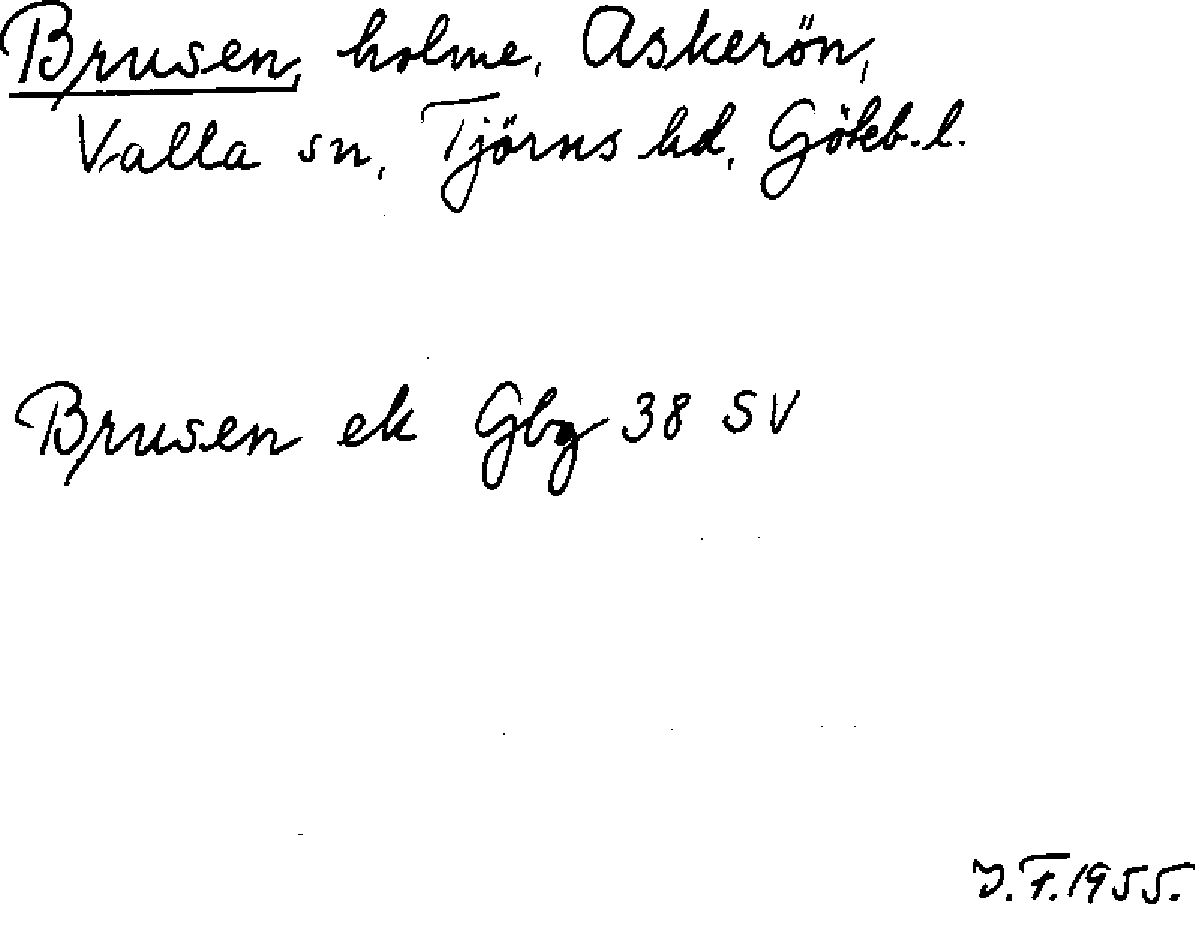 Brusen, holme, Askerön,
Valla sn, Tjörns hd, Göteb. l.
Brusen ek Gbg 38 SV
J.F. 1955.